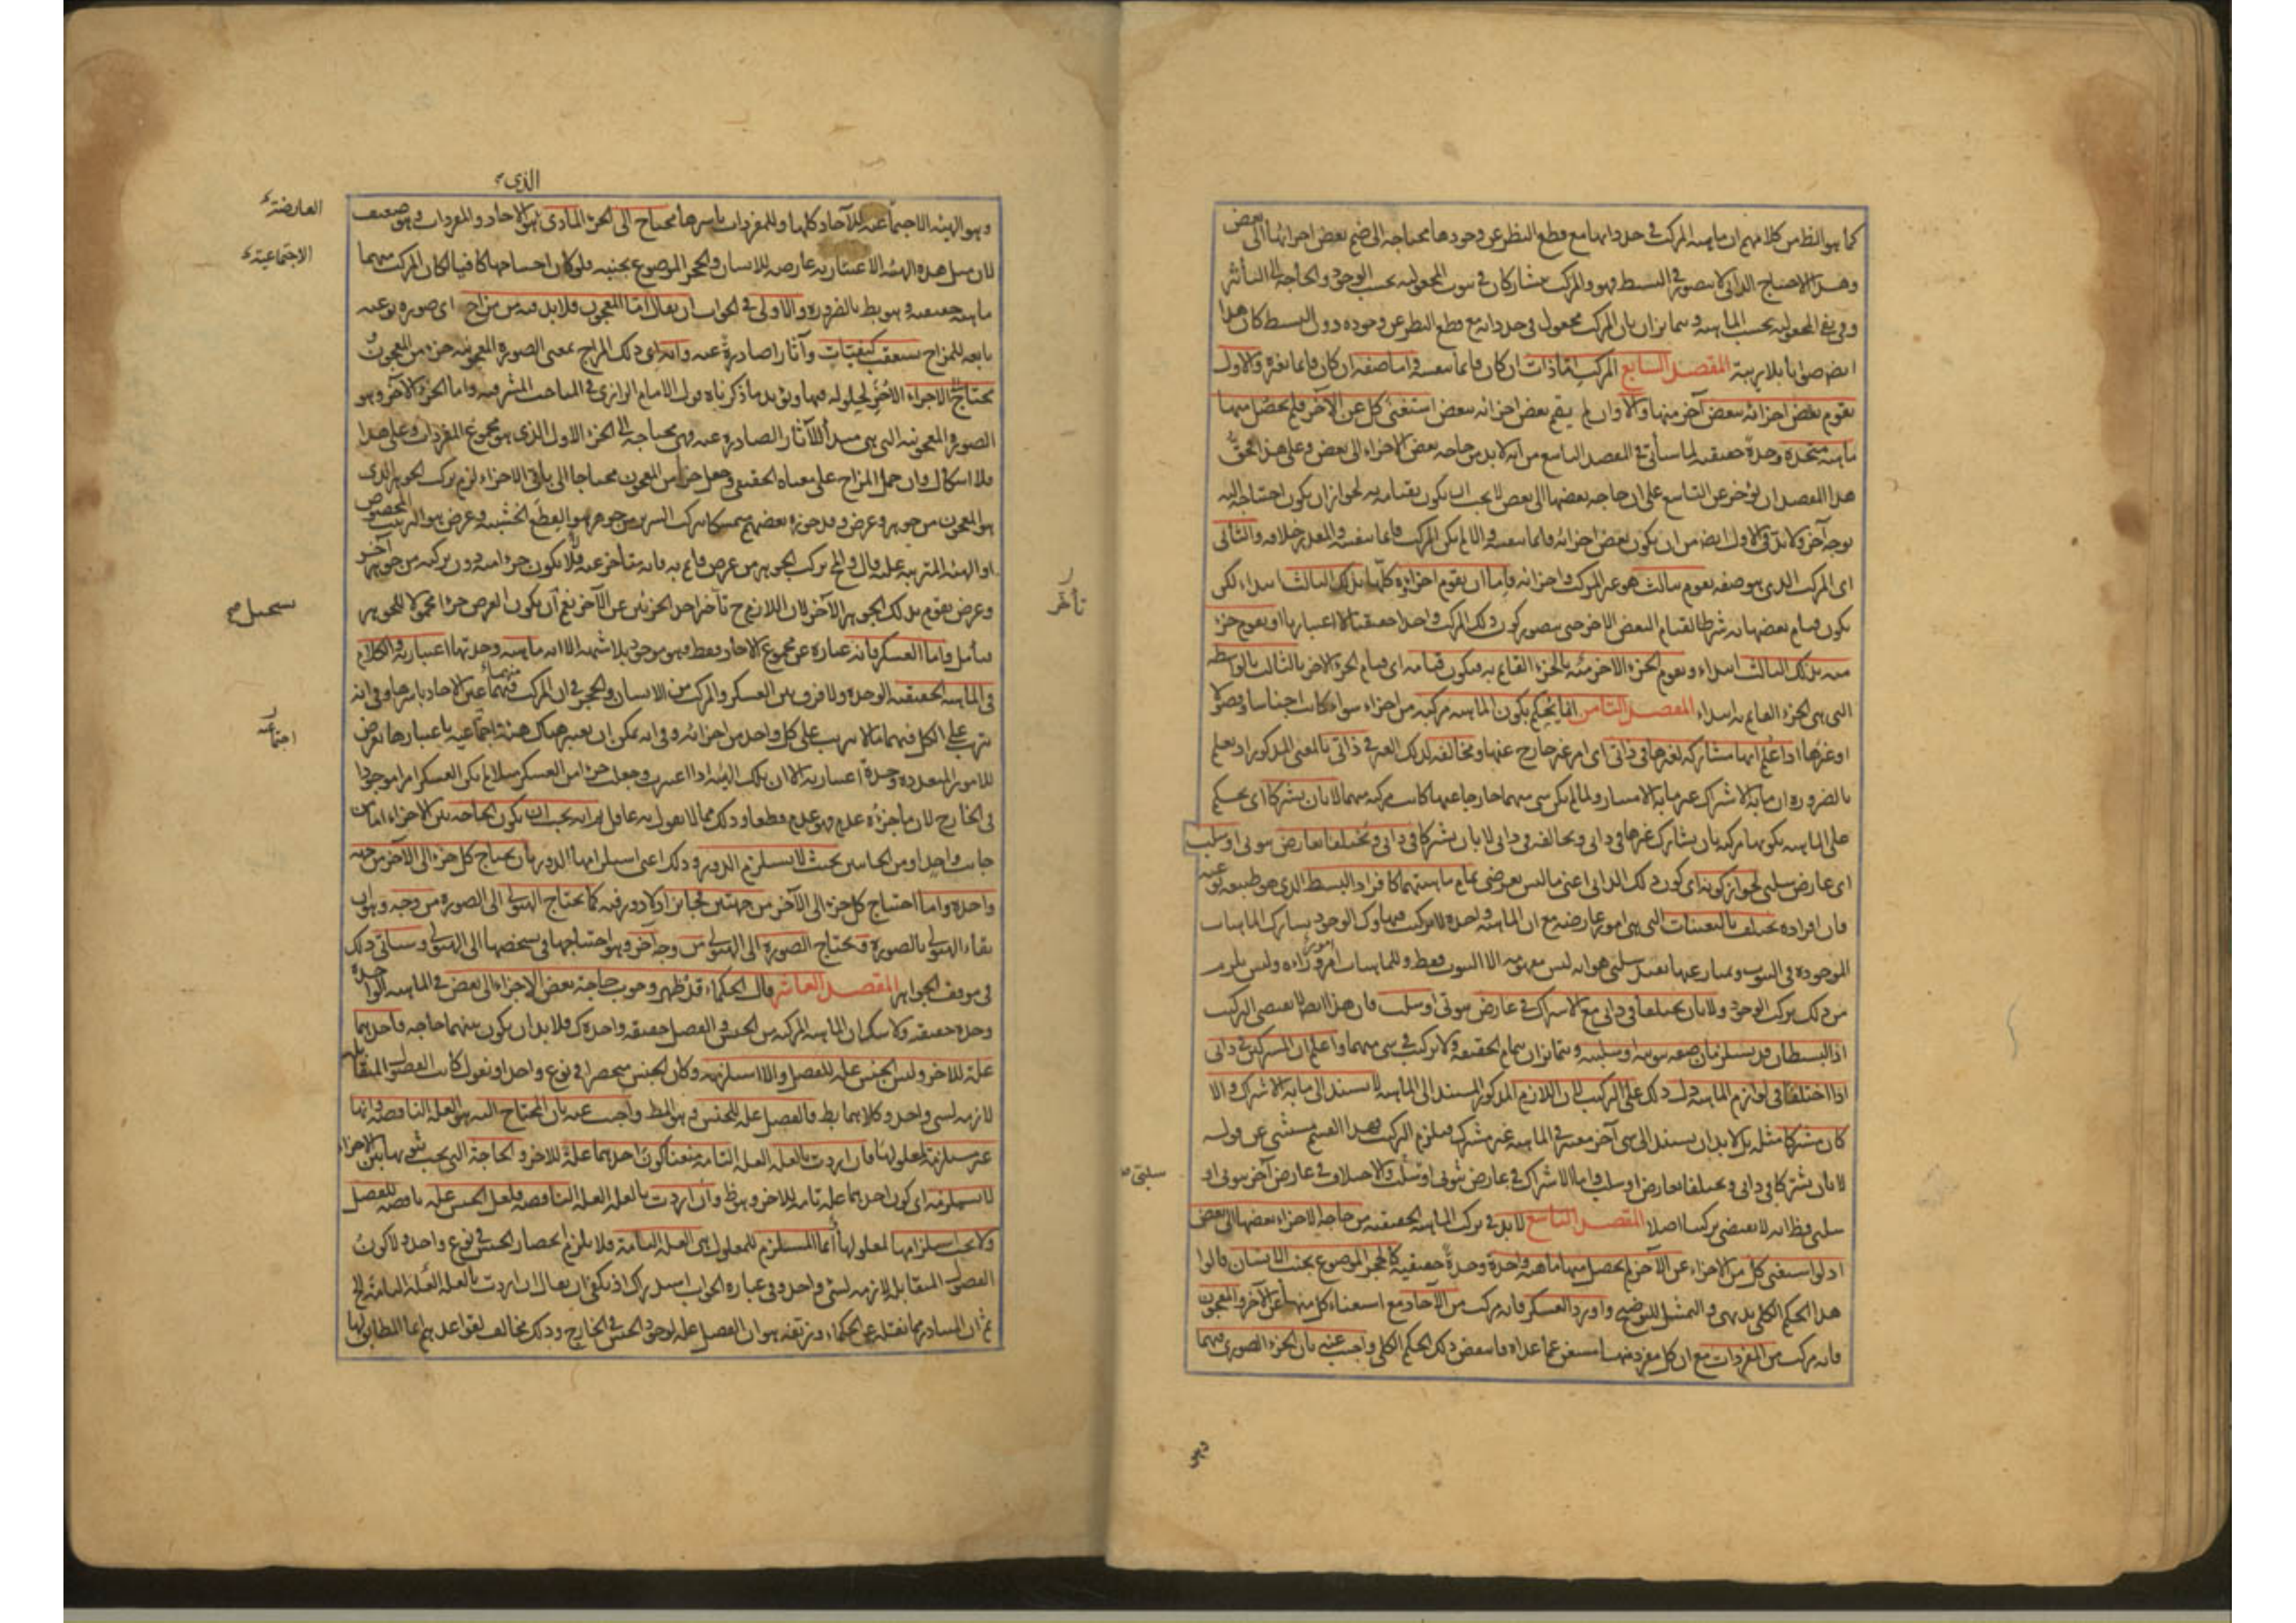 كما هو الظ من كلامهم ان ماهية المركب فى حد ذاتها مع قطع النظر عن وجودها محتاجة الى ضم بعض اجزائها الى بعض
وهذا الاحتياج الذاتى لا يتصور فى البسيط فهو والمركب متشاركان فى ثبوت المجعولية بحسب الوجود والحاجة الى التأثير
وفى نفى المجعولية بحسب الماهية ويتمايزان بان المركب مجعول فى حد ذاته مع قطع النظر عن وجوده دون البسيط كان هذا
ايض صوابا بلا ريبة المقصد السابع المركب اما ذات ان كان قائما بنفسه واما صفة ان كان قائما بغيره والاول
يقوم بعض اجزائه ببعض آخر منها والا وان لم يقم بعض اجزائه ببعض استغنى كل عن الآخر فلم يحصل منهما
ماهية متحدة وحدة حقيقية لما سيأتى فى المقصد التاسع من انه لا بد من حاجة بعض الاجزاء الى بعض وعلى هذا فحق
هذا المقصد ان يؤخر عن التاسع على ان حاجة بعضها الى بعض لا يجب ان يكون بقيامه به لجواز ان يكون احتياجه اليه
بوجه آخر ولا بد فى الاول ايض من ان يكون بعض اجزائه قائما بنفسه والا لم يكن المركب قائما بنفسه والمقدر خلافه والثانى
اى المركب الذى هو صفة يقوم بثالث هو غير المركب واجزائه فاما ان يقوم اجزاؤه كلها بذلك الثالث ابتداء لكن
يكون قيام بعضها به شرطا لقيام البعض الآخر حتى يتصور كون ذلك المركب واحدا حقيقيا لا اعتباريا او يقوم جزء
منه بذلك الثالث ابتداء ويقوم الجزء الآخر منه بالجزء القائم به فيكون قيامه اى قيام الجزء الآخر بالثالث بالواسطة
التى هى الجزء القائم به ابتداء المقصد الثامن انما يحكم بكون الماهية مركبة من اجزاء سواء كانت اجناسا وفصولا
او غيرها اذا علم انها مشاركة لغيرها فى ذاتى اى امر غير خارج عنها ومخالفة لذلك الغير فى ذاتى بالمعنى المذكور اذ يعلم
بالضرورة ان ما به الاشتراك غير ما به الامتياز ولما لم يكن شئ منهما خارجا عنها كانت مركبة منهما لا بان يشتركا اى يحكم
على الماهية بكونها مركبة بان يشارك غيرها فى ذاتى ويخالفه فى ذاتى لا بان يشتركا فى ذاتى ويختلفا بعارض ثبوتى او سلب
اى عارض سلبى لجواز كونه اى كون ذلك الذاتى اعنى ما ليس بعرضى تمام ماهيتهما كافراد البسيط الذى هو طبيعة نوعية
فان افراده تختلف بالتعينات التى هى امور عارضة مع ان الماهية واحدة لا تركيب فيها وكالوجود يشارك الماهيات
الموجودة فى الثبوت ويمتاز عنها بقيد سلبى هو انه ليس مفهومه الا الثبوت فقط وللماهيات امور وراءه وليس يلزم
من ذلك تركب الوجود ولا بان يختلفا فى ذاتى مع الاشتراك فى عارض ثبوتى او سلب فان هذا ايضا لا يقتضى التركيب
اذ البسيطان قد يستلزمان صفة ثبوتية او سلبية ويتمايزان بتمام الحقيقة ولا تركيب فى شئ منهما واعلم ان المشتركين فى ذاتى
اذا اختلفا فى لوازم الماهية دل ذلك على التركيب لان اللازم المذكور المستند الى الماهية لا يستند الى ما به الاشتراك والا
كان مشتركا مثله بل لا بد ان يستند الى شئ آخر معتبر فى الماهية غير مشترك فيلزم التركيب فهذا القسم مستثنى عن قوله
لا بان يشتركا فى ذاتى ويختلفا بعارض او سلب واما الاشتراك فى عارض ثبوتى او سلب والاختلاف فى عارض آخر ثبوتى او
سلبى
سلبى فظ انه لا يقتضى تركيبا اصلا المقصد التاسع لا بد فى تركب الماهية الحقيقية من حاجة الاجزاء بعضها الى بعض
اذ لو استغنى كل من الاجزاء عن الآخر لم يحصل منهما ماهية واحدة وحدة حقيقية كالحجر الموضوع بجنب الانسان قالوا
هذا الحكم الكلى بديهى والتمثيل للتوضيح واورد العسكر فانه مركب من الآحاد مع استغناء كل منها عن الآخر والمعجون
فانه مركب من المفردات مع ان كل مفرد منها مستغن عما عداه فانتقض ذلك الحكم الكلى واجيب عنه بان الجزء الصورى فيهما
وهو
الذى
وهو الهيئة الاجتماعية للآحاد كلها وللمفردات باسرها محتاج الى الجزء المادى هو الآحاد والمفردات وهو ضعيف
العارضة
لان مثل هذه الهيئة الاعتبارية عارضة للانسان والحجر الموضوع بجنبه فلو كان احتياجها كافيا لكان المركب منهما
الاجتماعية
ماهية حقيقية وهو بط بالضرورة والاولى فى الجواب ان يقال اما المعجون فلا بد فيه من مزاج اى صورة نوعية
تابعة للمزاج يستعقب كيفيات وآثارا صادرة عنه وانه اى ذلك المزاج بمعنى الصورة المعجونية جزء من المعجون
يحتاج الى الاجزاء الاخر لحلوله فيها ويؤيد ما ذكرناه قول الامام الرازى فى المباحث المشرقية واما الجزء الآخر وهو
الصورة المعجونية التى هى مبدأ للآثار الصادرة عنه فهى محتاجة الى الجزء الاول الذى هو مجموع المفردات وعلى هذا
فلا اشكال وان حمل المزاج على معناه الحقيقى وجعل جزأ من المعجون محتاجا الى باقى الاجزاء لزم تركب الجوهر الذى
هو المعجون من جوهر وعرض وقد جوزه بعضهم متمسكا بتركب السرير من جوهر هو القطع الخشبية وعرض هو الترتيب المخصوص
او الهيئة المترتبة عليه قال والمح تركب الجوهر من عرض قائم به فانه متأخر عنه فلا يكون جزءا منه دون تركبه من جوهر آخر
وعرض يقوم بذلك الجوهر الآخر لان اللازم ح تأخر احد الجزئين عن الآخر نعم ان يكون العرض جزءا محمولا للجوهر
تأخر
يستحيل
فتأمل واما العسكر فانه عبارة عن مجموع الآحاد فقط فهو موجود بلا شبهة الا انه ماهية وحدتها اعتبارية والكلام
فى الماهية الحقيقية الوحدة ولا فرق بين العسكر والمركب من الانسان والحجر فى ان المركب فيهما عين الآحاد باسرها وفى انه
يترتب على الكل فيهما ما لا يترتب على كل واحد من اجزائه وفى انه يمكن ان يعتبر هناك هيئة اجتماعية باعتبارها تعرض
اجتماعية
للامور المتعددة وحدة اعتبارية الا ان تلك الهيئة اذا اعتبرت وجعلت جزءا من العسكر مثلا لم يكن العسكر امرا موجودا
فى الخارج لان ما جزؤه عدم فهو عدم قطعا وذلك مما لا يقول به عاقل ثم انه يجب ان يكون الحاجة بين الاجزاء اما من
جانب واحد او من الجانبين بحيث لا يستلزم الدور وذلك اعنى استلزامها الدور بان يحتاج كل جزء الى الآخر من جهة
واحدة واما احتياج كل جزء الى الآخر من جهتين فجائز اذ لا دور فيه كما يحتاج الهيولى الى الصورة من وجه وهو
بقاء الهيولى بالصورة ويحتاج الصورة الى الهيولى من وجه آخر وهو احتياجها فى تشخصها الى الهيولى وسيأتى ذلك
فى موقف الجواهر المقصد العاشر قال الحكماء قد ظهر وجوب حاجة بعض الاجزاء الى بعض فى الماهية الواحدة
وحدة حقيقية ولا شك ان الماهية المركبة من الجنس والفصل حقيقة واحدة كك فلا بد ان يكون بينهما حاجة فاحدهما
علة للآخر وليس الجنس علة للفصل والا استلزمه وكان الجنس منحصرا فى نوع واحد او نقول كانت الفصول المتقابلة
لازمة لشئ واحد وكلاهما بط فالفصل علة للجنس وهو المط واجيب عنه بان المحتاج اليه هو العلة الناقصة وانها
غير مستلزمة لمعلولها فان اردت بالعلة العلة التامة منعنا كون احدهما علة للآخر والحاجة التى يجب ثبوتها بين الاجزاء
لا يستلزمه اى كون احدهما علة تامة للآخر وهو ظ وان اردت بالعلة العلة الناقصة فلعل الجنس علة ناقصة للفصل
ولا يجب استلزامها لمعلولها انما المستلزم للمعلول هى العلة التامة فلا يلزم انحصار الجنس فى نوع واحد ولا كون
الفصول المتقابلة لازمة لشئ واحد وفى عبارة الجواب استدراك اذ يكفى ان يقال ان اردت بالعلة العلة التامة الخ
ثم ان المتبادر مما نقله عن الحكماء وزيفه هو ان الفصل علة لوجود الجنس فى الخارج وذلك مخالف لقواعدهم انما المطابق لها